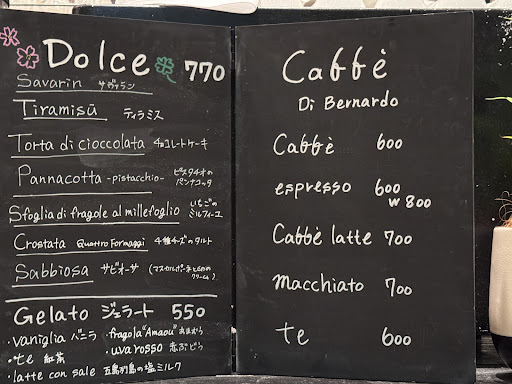 Dolce 770
Savarin サヴァラン
Tiramisū ティラミス
Torta di cioccolata チョコレートケーキ
Pannacotta -pistacchio- ピスタチオの
パンナコッタ
Sfoglia di fragole al millefoglio いちごの
ミルフィーユ
Crostata Quattro Formaggi 4種チーズのタルト
Sabbiosa サビオーサ (マスカルポーネと
Gelato ジェラート 550
・vaniglia バニラ ・fragola "Amaou" あまおう
・te 紅茶 ・uva rosso 赤ぶどう
・latte con sale 五島列島の塩ミルク
Caffè
Di Bernardo
Caffè 600
espresso 600
W 800
Caffè latte 700
Macchiato 700
te 600